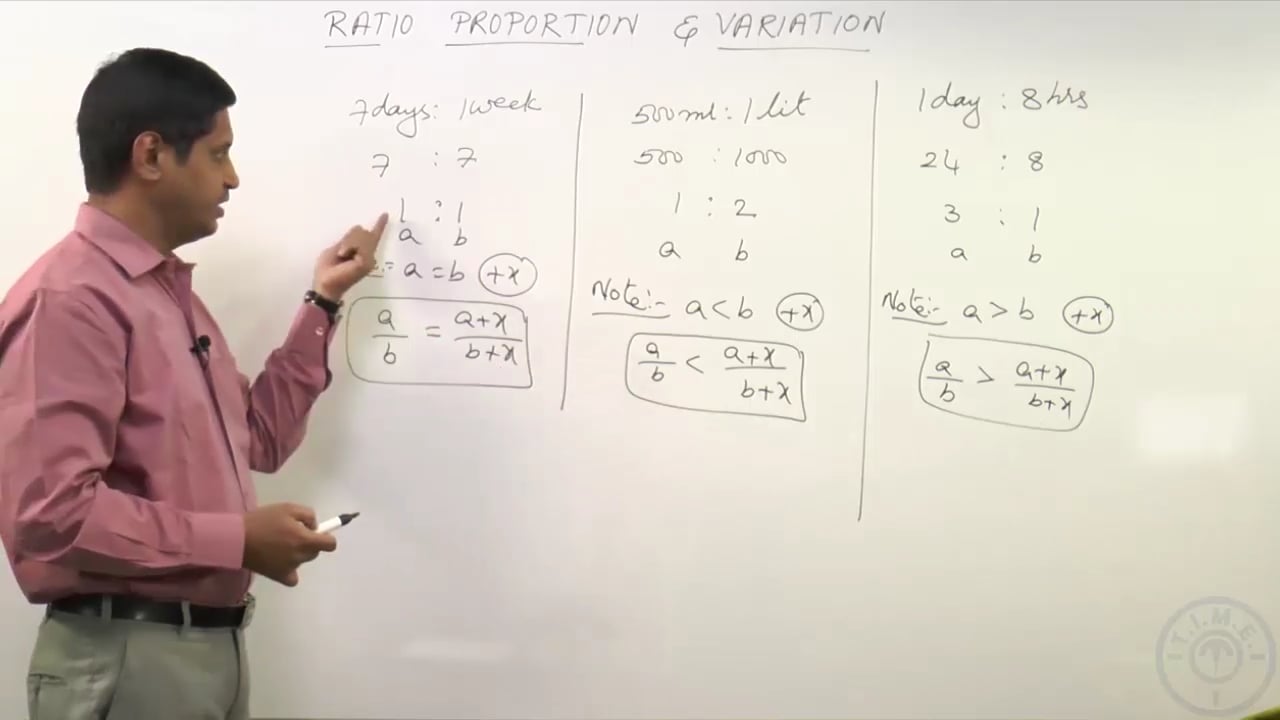 RATIO PROPORTION & VARIATION
7days: 1week
7 : 7
1 : 1
a b
a = b +x
a/b = a+x/b+x
500ml : 1 lit
500 : 1000
1 : 2
a b
Note:- a < b +x
a/b < a+x/b+x
1day : 8hrs
24 : 8
3 : 1
a b
Note:- a > b +x
a/b > a+x/b+x
T.I.M.E.